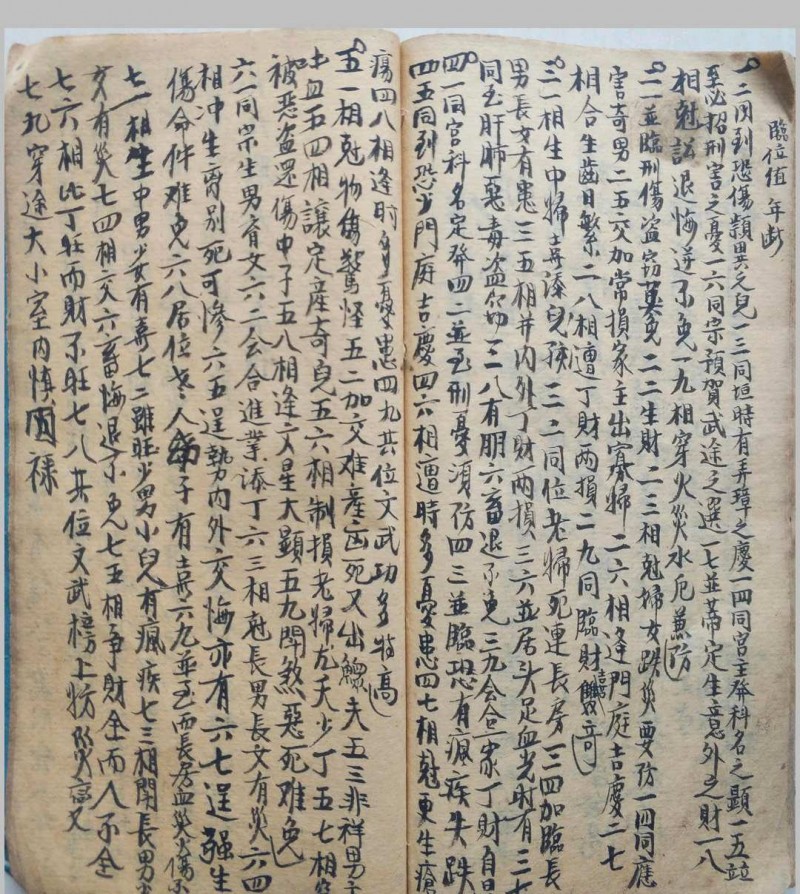 臨位值年断
一二同到恐傷頴異之兒一三同垣時有弄璋之慶一四同宮主發科名之顯一五竝
至必招刑害之憂一六同宗預賀武途之選一七並蒂定生意外之財一八
相尅訟退悔迸不免一九相穿火災水厄兼防
二一並臨刑傷盗窃莫免二二生財二三相尅婦女跌災要防一四同應
害奇男二五交加常損家主出寡婦二六相逢門庭吉慶二七
相合生齒日繁二八相遭丁財两損二九同臨財喜奇
三一相生中婦喜添兒孩三二同位老婦死連長房三四加臨長
男長女有患三五相并内外丁財两損三六並居头足血光時有三七
同至肝肺惡毒盗劫三八有朋六畜退不免三九会合一家丁財自
四一同宮科名定發四二並至刑憂須防四三並臨恐有瘋疾失跌
四五同到恐少門庭吉慶四六相遭時多憂患四七相尅更生瘡
瘍四八相逢时多憂患四九共位文武功多特高
五一相尅物傷驚怪五二加交难產凶死又出鰥夫五三非祥男主
吐血五四相讓定產奇皃五六相制損老婦尤夭少丁五七相穿
被惡盗還傷中子五八相逢文星大顯五九閗煞惡死难免
六一同宗生男育女六二会合進業添丁六三相尅長男長女有災六四
相冲生离别死可惨六五逞勢内外交悔亦有六七逞强生
傷命件难免六八居位老人弟子有喜六九並至而長房血災火傷
七一相生中男少女有喜七二雖旺少男小兒有瘋疾七三相閗長男少
女有災七四相交六畜悔退不免七五相爭財全而人不全
七六相比丁旺而財不旺七八共位文武榜上扬災區又
七九穿途大小室内慎固禄